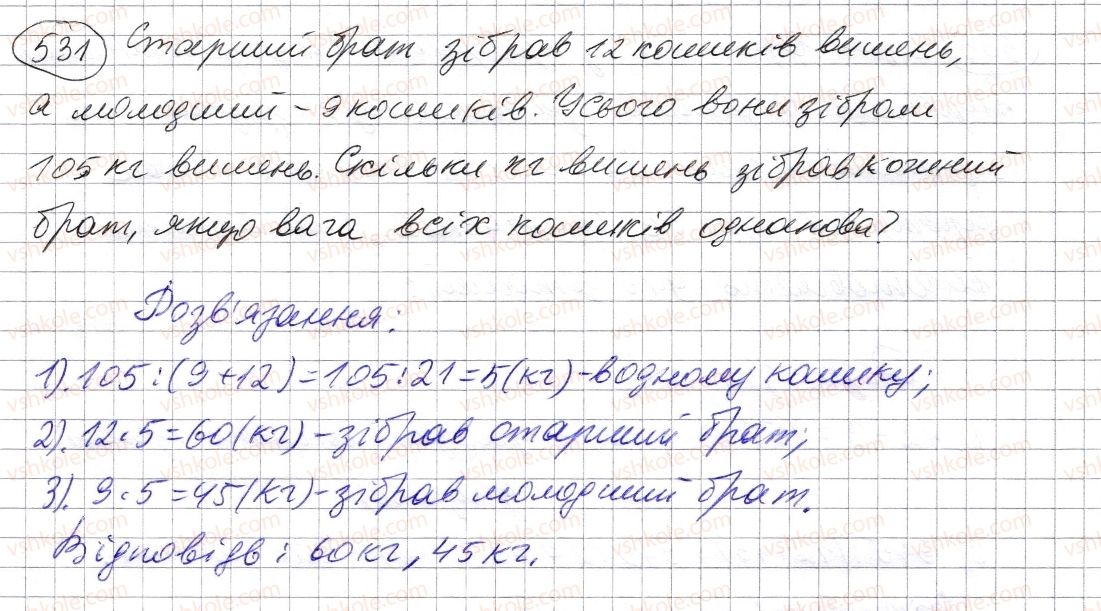 531 Старший брат зібрав 12 кошиків вишень,
а молодший - 9 кошиків. Усього вони зібрали
105 кг вишень. Скільки кг вишень зібрав кожний
брат, якщо вага всіх кошиків однакова?
Розв'язання:
1). 105 : (9 + 12) = 105 : 21 = 5 (кг) - в одному кошику;
2). 12 · 5 = 60 (кг) - зібрав старший брат;
3). 9 · 5 = 45 (кг) - зібрав молодший брат.
Відповідь : 60 кг, 45 кг.